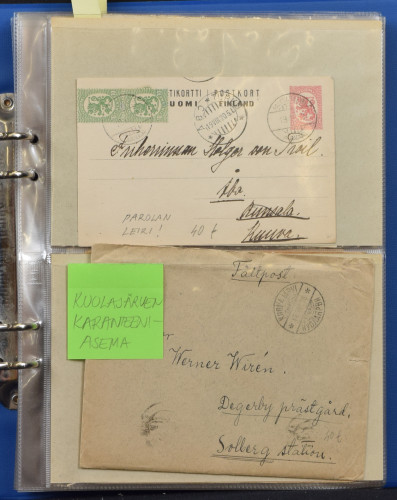 TIKORTTI POSTKORT
UOMI FINLAND
Friherinnan Holger von Troil.
Åbo
Runsala
PAROLAN
LEIRI!
40 €
Fältpost.
KUOLAJÄRVEN
KARANTEENI-
ASEMA
Werner Wirén.
Degerby prästgård.
Solberg station.